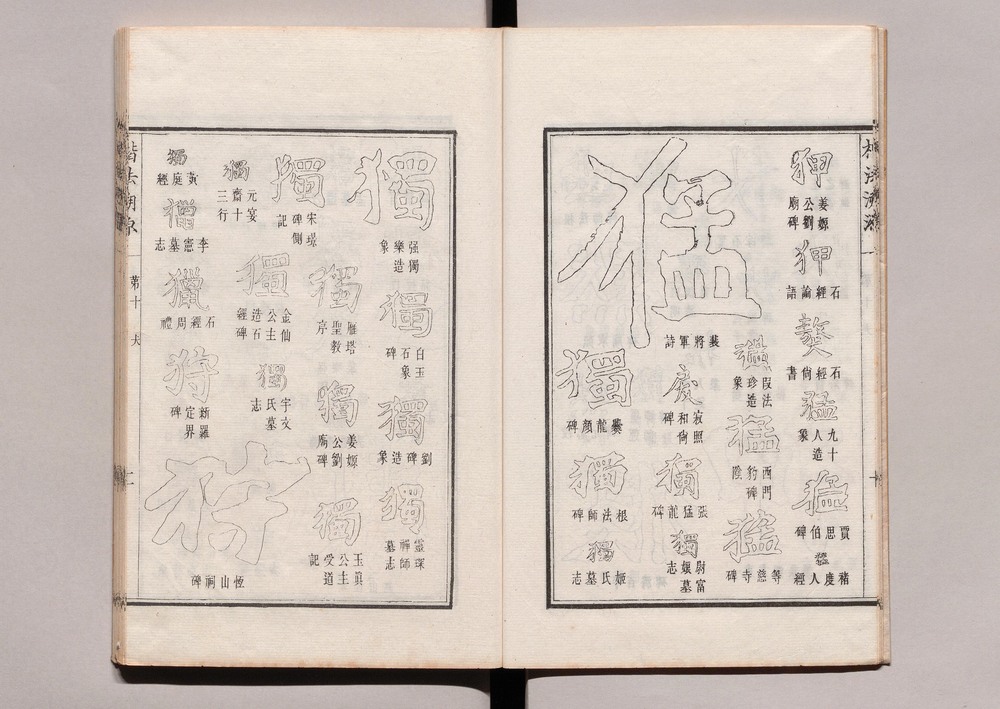 狎
姜嫄
公劉
廟碑
狎
石經論語
獒
石經尙書
猛
九十
人造
象
猛
賈思伯碑
猛
褚度人經
猛
裴將軍詩
猛
叚法
珍造
象
猛
西門
豹碑
陰
猛
等慈寺碑
戾
寂照
和尙
碑
獨
張猛龍碑
獨
尉富
孃墓
志
獨
爨龍顏碑
獨
根法師碑
獨
姬氏墓志
獨
强獨
樂造
象
獨
白玉
石象
碑
獨
劉碑造象
獨
靈琛
禪師
墓志
獨
宋璟
碑側
記
獨
雁塔
聖教
序
獨
姜嫄
公劉
廟碑
獨
玉眞
公主
受道
記
獨
元宴
齋十
三行
獨
金仙
公主
造石
經碑
獨
宇文
氏墓
志
獨
黃庭經
李憲墓志
獵
石經周禮
狩
新羅
定界
碑
狩
恆山祠碑
楷法溯源
第十